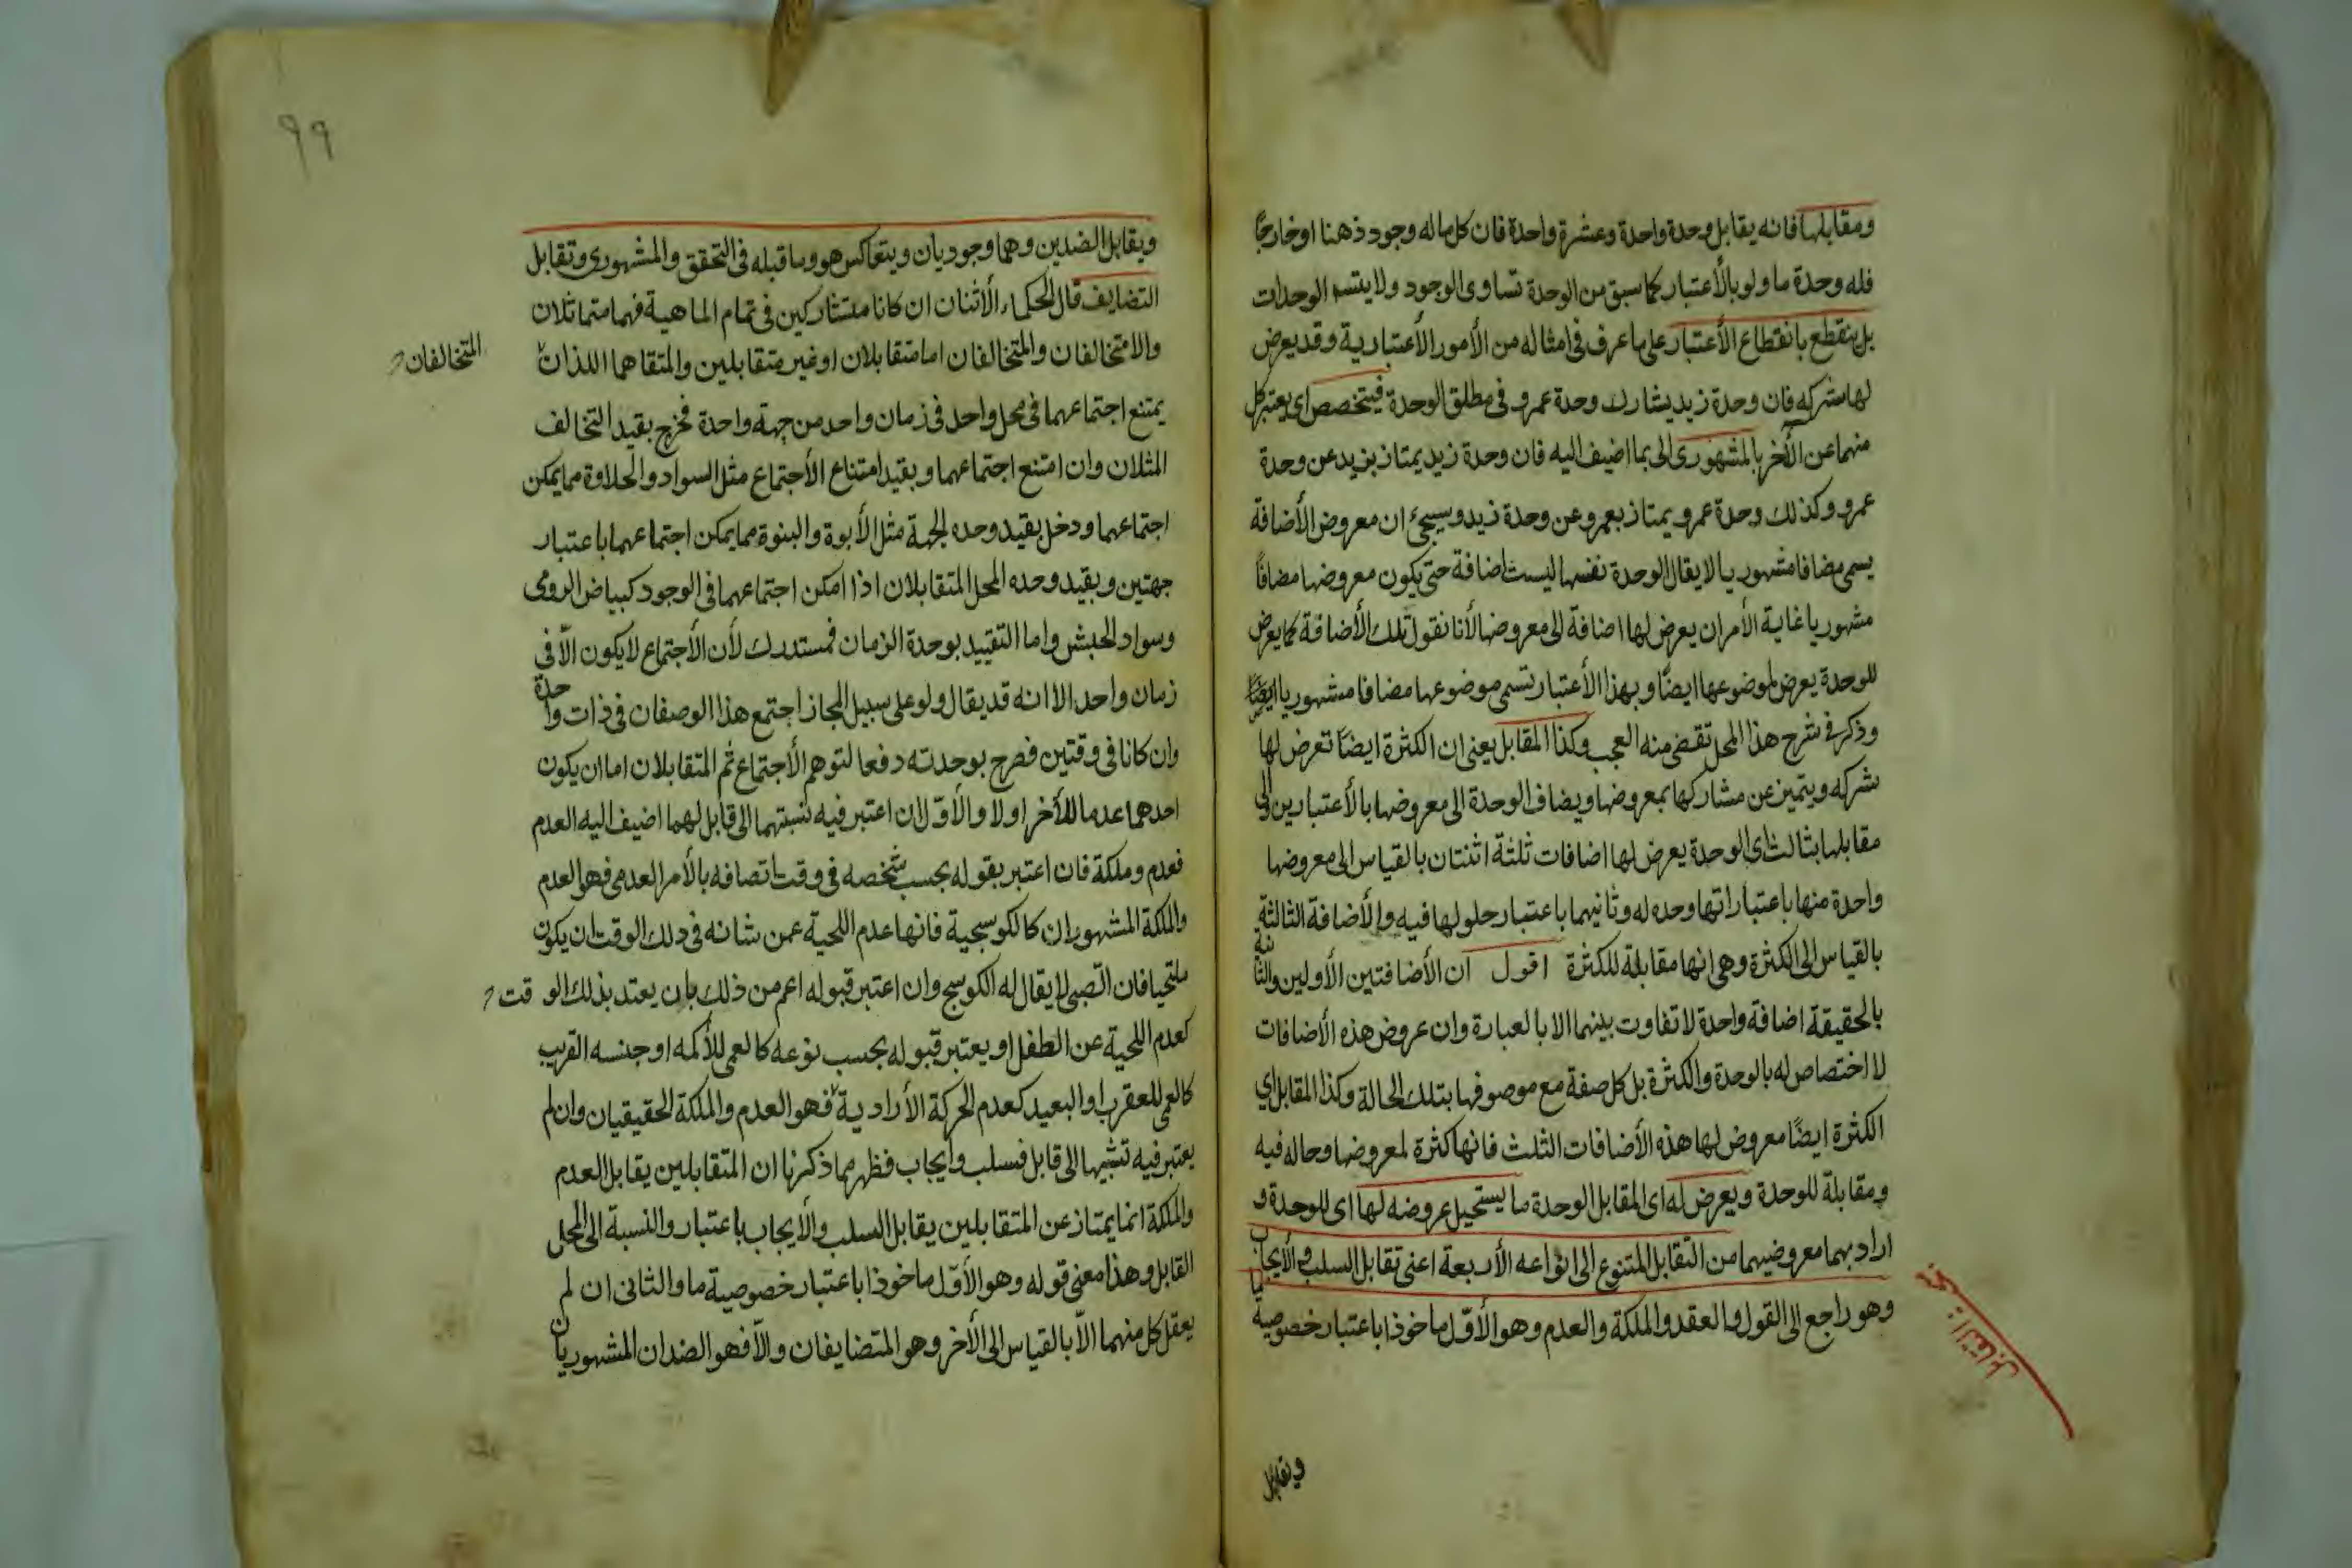 ومقابلها فانه يقابل وحدة واحدة وعشرة واحدة فان كل ماله وجود ذهنا او خارجًا
فله وحدة ما ولو بالأعتبار كما سبق من الوحدة تساوى الوجود ولا يتسم الوحدات
بل ينقطع بانقطاع الأعتبار على ما عرف فى امثاله من الأمور الأعتبارية وقد يعرض
لها شركه فان وحدة زيد يشارك وحدة عمرو فى مطلق الوحدة فيتخصص اى يعتبر كل
منهما عن الأخر بالمشهورى الى بما اضيف اليه فان وحدة زيد يمتاز بزيد عن وحدة
عمرو وكذلك وحدة عمرو يمتاز بعمرو عن وحدة زيد وسيجئ ان معروض الأضافة
يسمى مضافا مشهوريا لا يقال الوحدة نفسها ليست اضافة حتى يكون معروضها مضافًا
مشهوريا غاية الأمر ان يعرض لها اضافة الى معروضها لأنا نقول تلك الأضافة كما يعرض
للوحدة يعرض لموضوعها ايضًا وبهذا الأعتبار تسمى موضوعها مضافا مشهوريا ايضًا
وذكر فى شرح هذا المحل تقضى منه العجب وكذا المقابل يعنى ان الكثرة ايضًا تعرض لها
شركه ويتميز عن مشاركها بمعروضها ويضاف الوحدة الى معروضها بالأعتبارين والى
مقابلها بثالث اى الوحدة يعرض لها اضافات ثلثة اثنتان بالقياس الى معروضها
واحدة منها باعتبار اتها وحده له وثانيهما باعتبار حلولها فيه والأضافة الثالثة
بالقياس الى الكثرة وهى انها مقابلة للكثرة اقول ان الأضافتين الأوليين والثانية
بالحقيقة اضافة واحدة لا تفاوت بينهما الا بالعبارة وان عروض هذه الأضافات
لا اختصاص له بالوحدة والكثرة بل كل صفة مع موصوفها بتلك الحالة وكذا المقابل اي
الكثرة ايضًا معروض لها هذه الأضافات الثلث فانها كثرة لمعروضها وحاله فيه
ومقابلة للوحدة ويعرض له اى المقابل الوحدة ما يستحيل عروضه لها اى للوحدة و
اراد بهما معروضيهما من التقابل المتنوع الى انواعه الأربعة اعنى تقابل السلب والأيجاب
وهو راجع الى القول والعقد والملكة والعدم وهو الأوّل ماخوذا باعتبار خصوصية ما
التقابل
وتقابل
٩٩
ويقابل الضدين وهما وجوديان ويتعاكس هو وما قبله فى التحقق والمشهورى وتقابل
التضايف قال الحكماء الأثنان ان كانا متشاركين فى تمام الماهية فهما متماثلان
والا متخالفان والمتخالفان اما متقابلان او غير متقابلين والمتقاهما اللذان
المتخالفان
يمتنع اجتماعهما فى محل واحد فى زمان واحد من جهة واحدة فخرج بقيد التخالف
المثلان وان امتنع اجتماعهما وبقيد امتناع الأجتماع مثل السواد والحلاوة مما يمكن
اجتماعهما ودخل بقيد وحده الجهة مثل الأبوة والبنوة مما يمكن اجتماعهما باعتبار
جهتين وبقيد وحده المحل المتقابلان اذا امكن اجتماعهما فى الوجود كبياض الرومى
وسواد الحبش واما التقييد بوحدة الزمان فمستدرك لأن الأجتماع لا يكون الّا فى
زمان واحد الا انه قد يقال ولو على سبيل المجاز اجتمع هذا الوصفان فى ذات واحدة
وان كانا فى وقتين فصرح بوحدته دفعا لتوهم الأجتماع ثم المتقابلان اما ان يكون
احدهما عدما للأخر او لا والأوّل ان اعتبر فيه نسبتهما الى قابل لهما اضيف اليه العدم
فعدم وملكة فان اعتبر بقوله بحسب شخصه فى وقت اتصافه بالأمر العدمى فهو العدم
والملكة المشهوران كالكوسجية فانها عدم اللحية عمن شانه فى ذلك الوقت ان يكون
ملتحيا فان الصّبى لا يقال له الكوسج وان اعتبر قبوله اعم من ذلك بان يعتد بذلك الوقت
كعدم اللحية عن الطفل او يعتبر قبوله بحسب نوعه كالعمى للأكمه او جنسه القريب
كالعمى للعقرب او البعيد كعدم الحركة الأرادية فهو العدم والملكة الحقيقيان وان لم
يعتبر فيه تشبيها الى قابل فسلب وايجاب فظهر مما ذكرنا ان المتقابلين يقابل العدم
والملكة انما يمتاز عن المتقابلين يقابل السلب والأيجاب باعتبار والنسبة الى المحل
القابل وهذا معنى قوله وهو الأوّل ماخوذا باعتبار خصوصية ما والثانى ان لم
يعقل كل منهما الاّ بالقياس الى الأخر وهو المتضايفان والاّ فهو الضدان المشهوريان